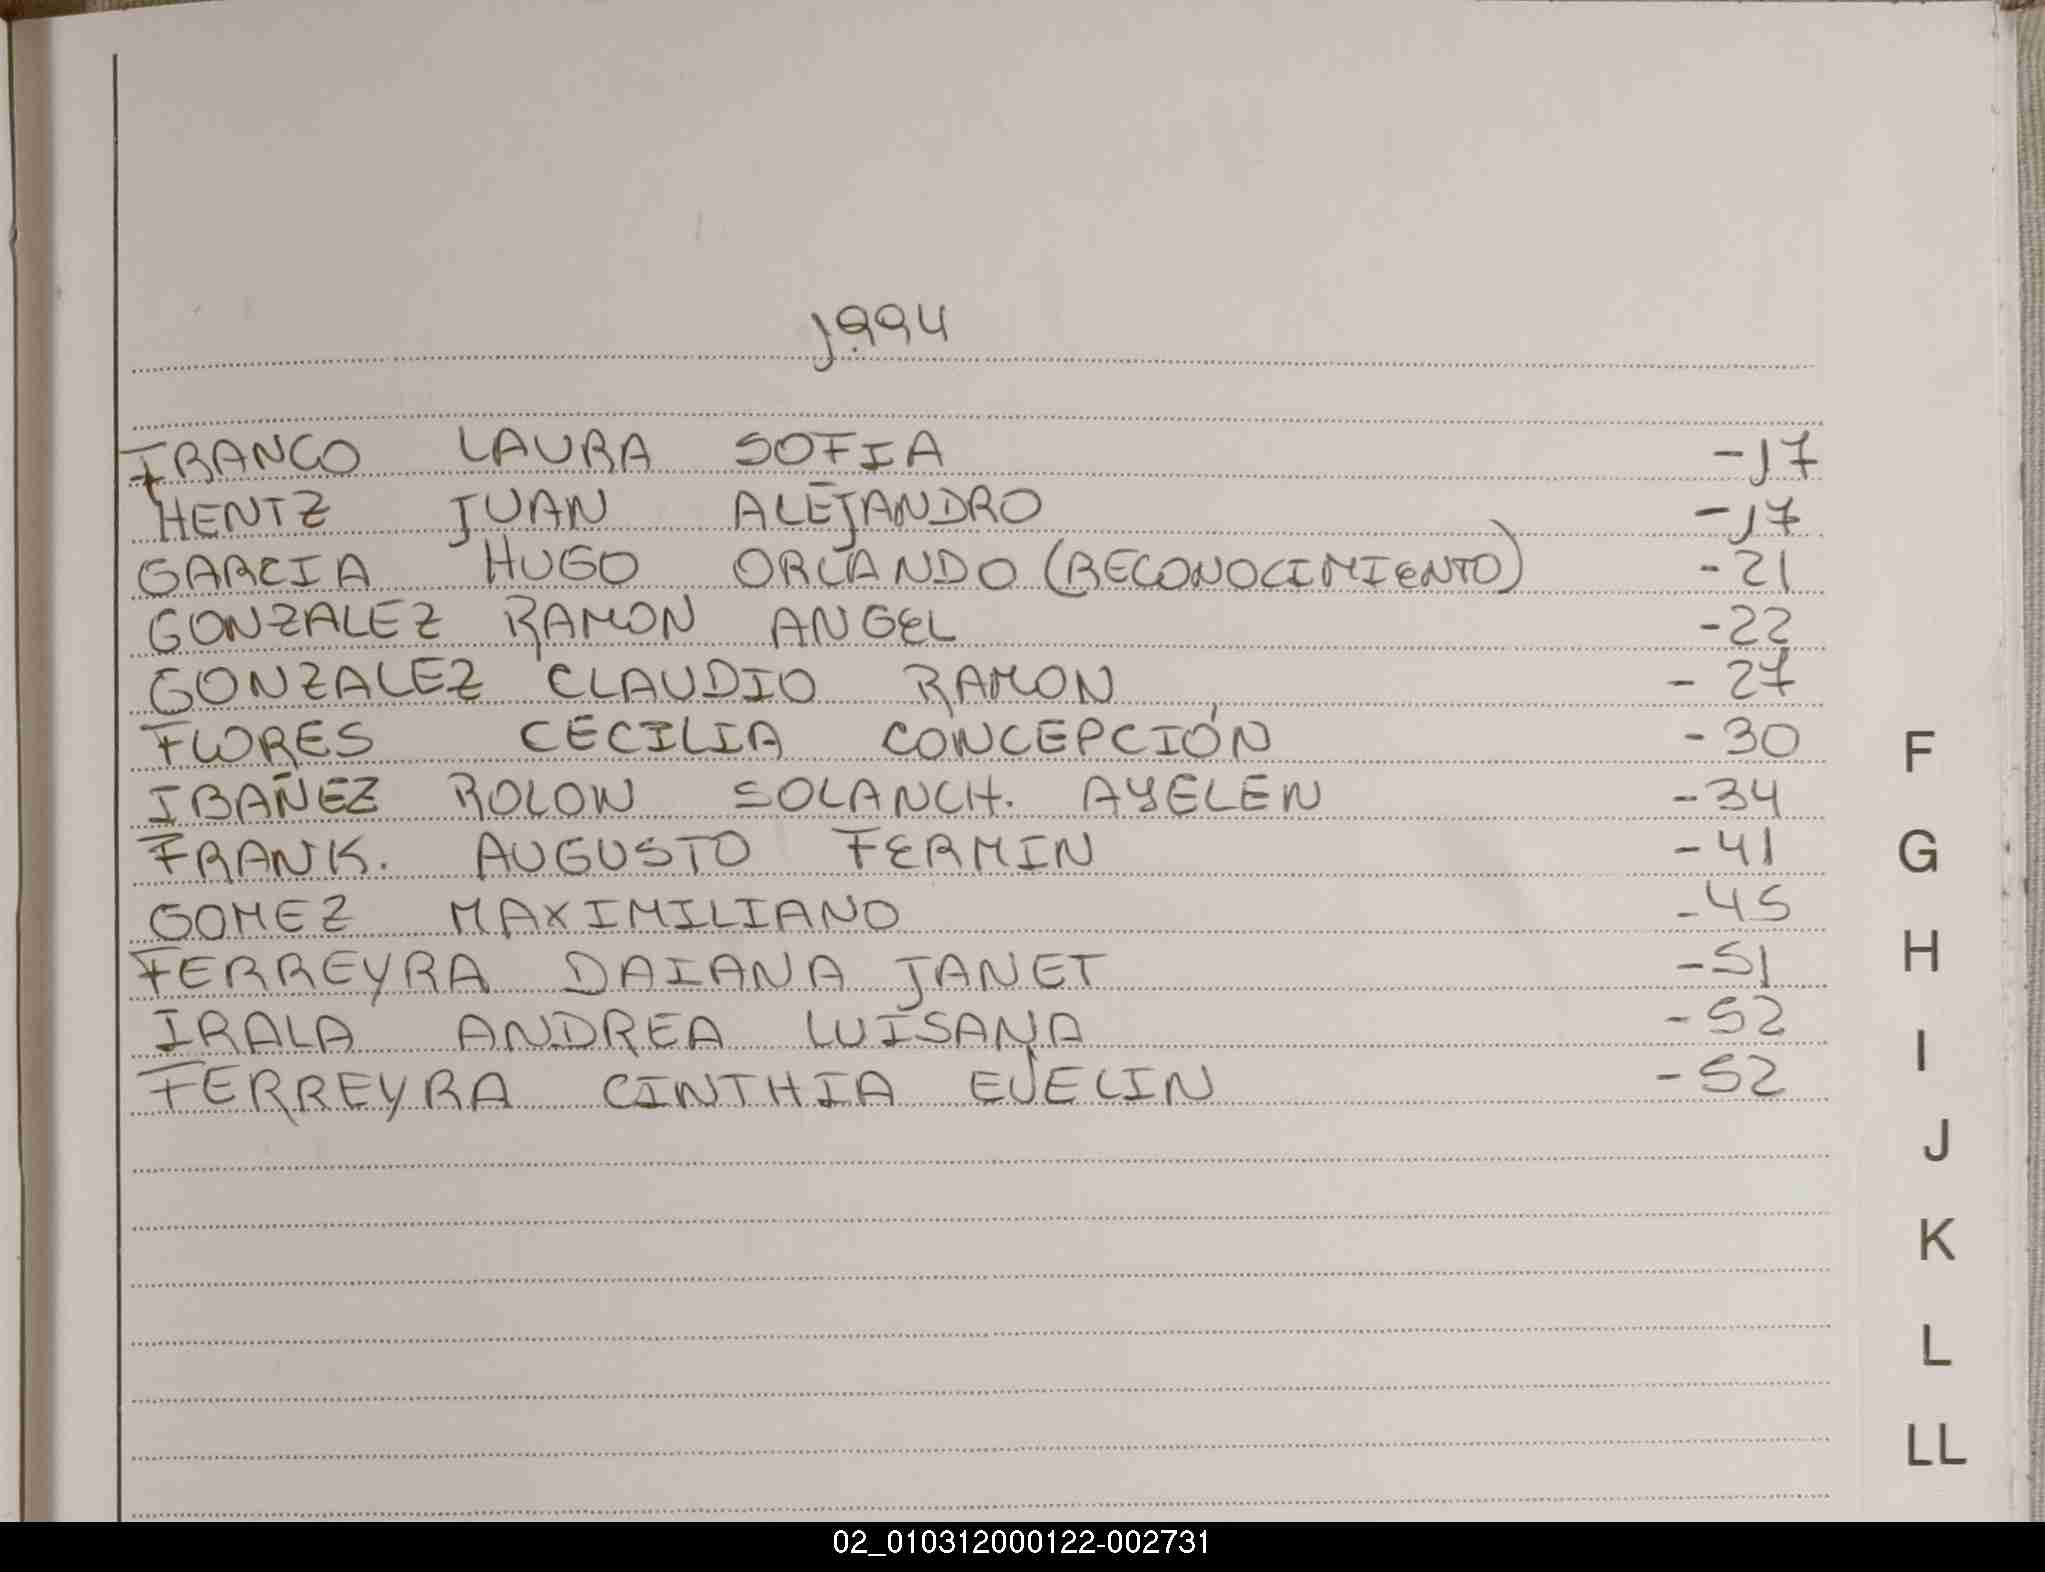 1994
FRANCO LAURA SOFIA -17
HENTZ JUAN ALEJANDRO -17
GARCIA HUGO ORLANDO (RECONOCIMIENTO) -21
GONZALEZ RAMON ANGEL -22
GONZALEZ CLAUDIO RAMON - 27
FLORES CECILIA CONCEPCIÓN - 30
IBAÑEZ ROLON SOLANCH. AYELEN -34
FRANK. AUGUSTO FERMIN -41
GOMEZ MAXIMILIANO -45
FERREYRA DAIANA JANET -51
IRALA ANDREA LUISANA -52
FERREYRA CINTHIA EVELIN -52
F
G
H
I
J
K
L
LL
02_010312000122-002731